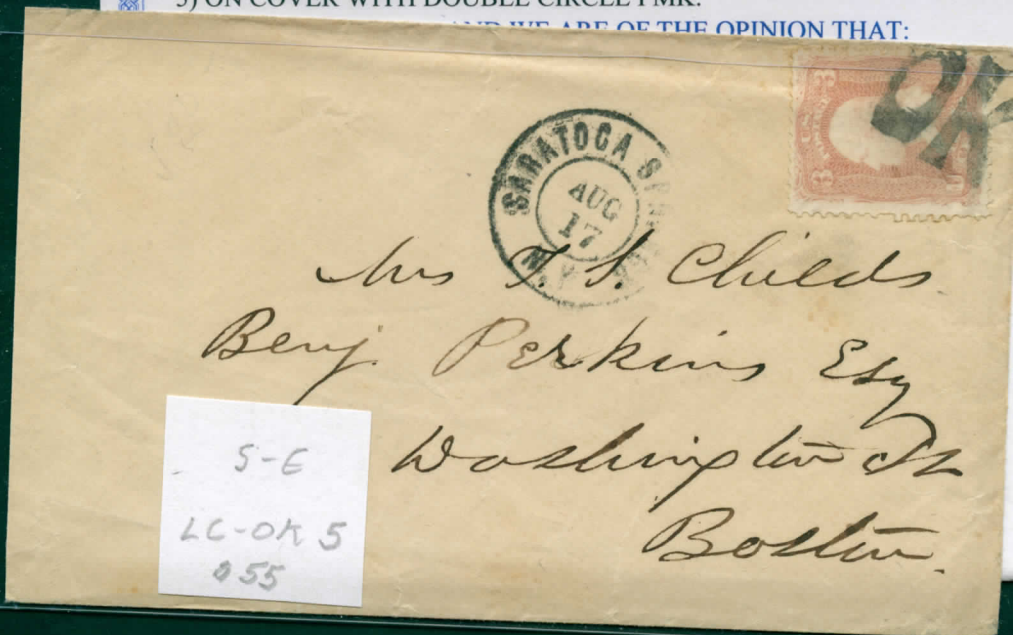 5) ON COVER WITH DOUBLE CIRCLE PMK.
AND WE ARE OF THE OPINION THAT:
3
3
OK
SARATOGA SP
AUG
17
N.Y.
Mrs T. S. Childs
Benj. Perkins Esq
Washington St
Boston.
S-E
LC-OK 5
055